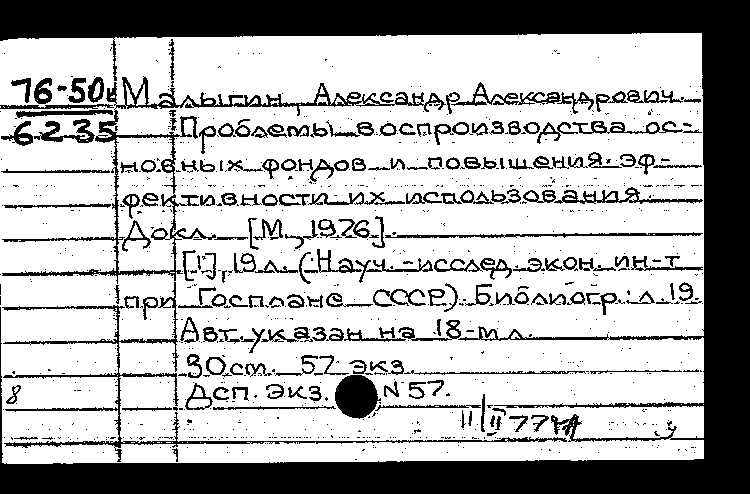 76-50
6235
Малыгин, Александр Александрович.
Проблемы воспроизводства ос-
новных фондов и повышения эф-
фективности их использования.
Докл. [М., 1976].
[1], 19 л. (Науч.-исслед. экон. ин-т
при Госплане СССР). Библиогр.: л. 19.
Авт. указан на 18-м л.
30 см. 57 экз.
8 Дсп. Экз. N 57.